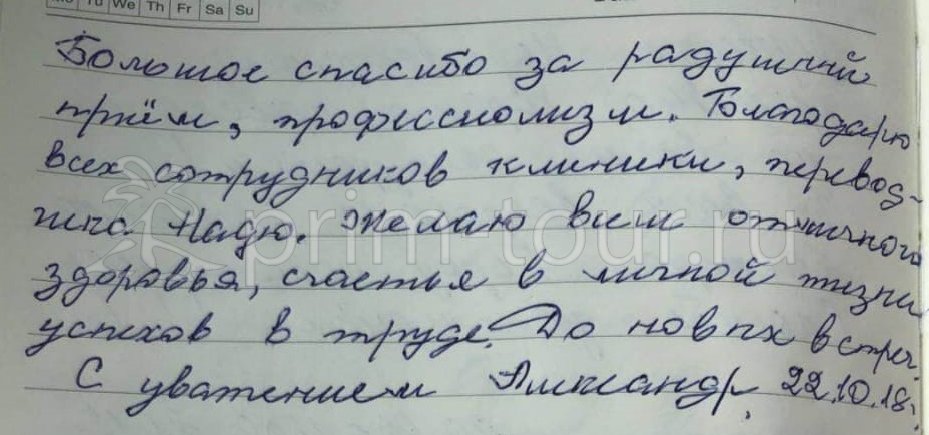 Mo Tu We Th Fr Sa Su
Большое спасибо за радушный
приём, профессионализм. Благодарю
всех сотрудников клиники, перевод-
чика Надю. Желаю всем отличного
здоровья, счастья в личной жизни
успехов в труде. До новых встреч.
С уважением Александр, 22.10.18г.
prim-tour.ru